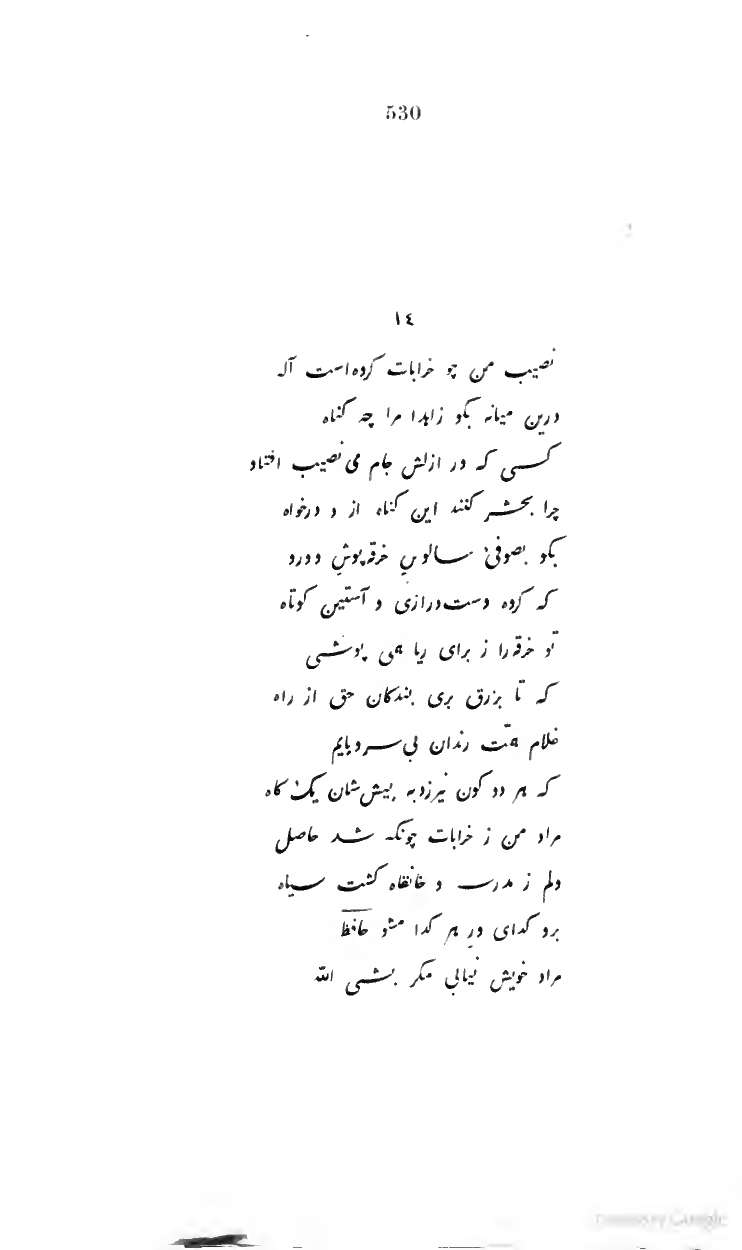 530
١٤
نصیب من چو خرابات کرده‌است آله
درین میانه بکو زاهدا مرا چه کناه
کسی که در ازلش جام می نصیب افتاد
چرا بحشر کنند این کناه از و درخواه
بکو بصوفئ سالوسِ خرقه‌پوشِ دورو
که کرده دست‌درازی و آستین کوتاه
تو خرقه‌را ز برای ریا همی پوشی
که تا بزرق بری بندکان حق از راه
غلام همّت رندان بی‌سروپایم
که هر دو کون نیرزد به پیش‌شان یک کاه
مراد من ز خرابات چونکه شد حاصل
دلم ز مدرسه و خانقاه کشت سیاه
برو کدای درِ هر کدا مشو حافظ
مراد خویش نیابی مکر بشی الله